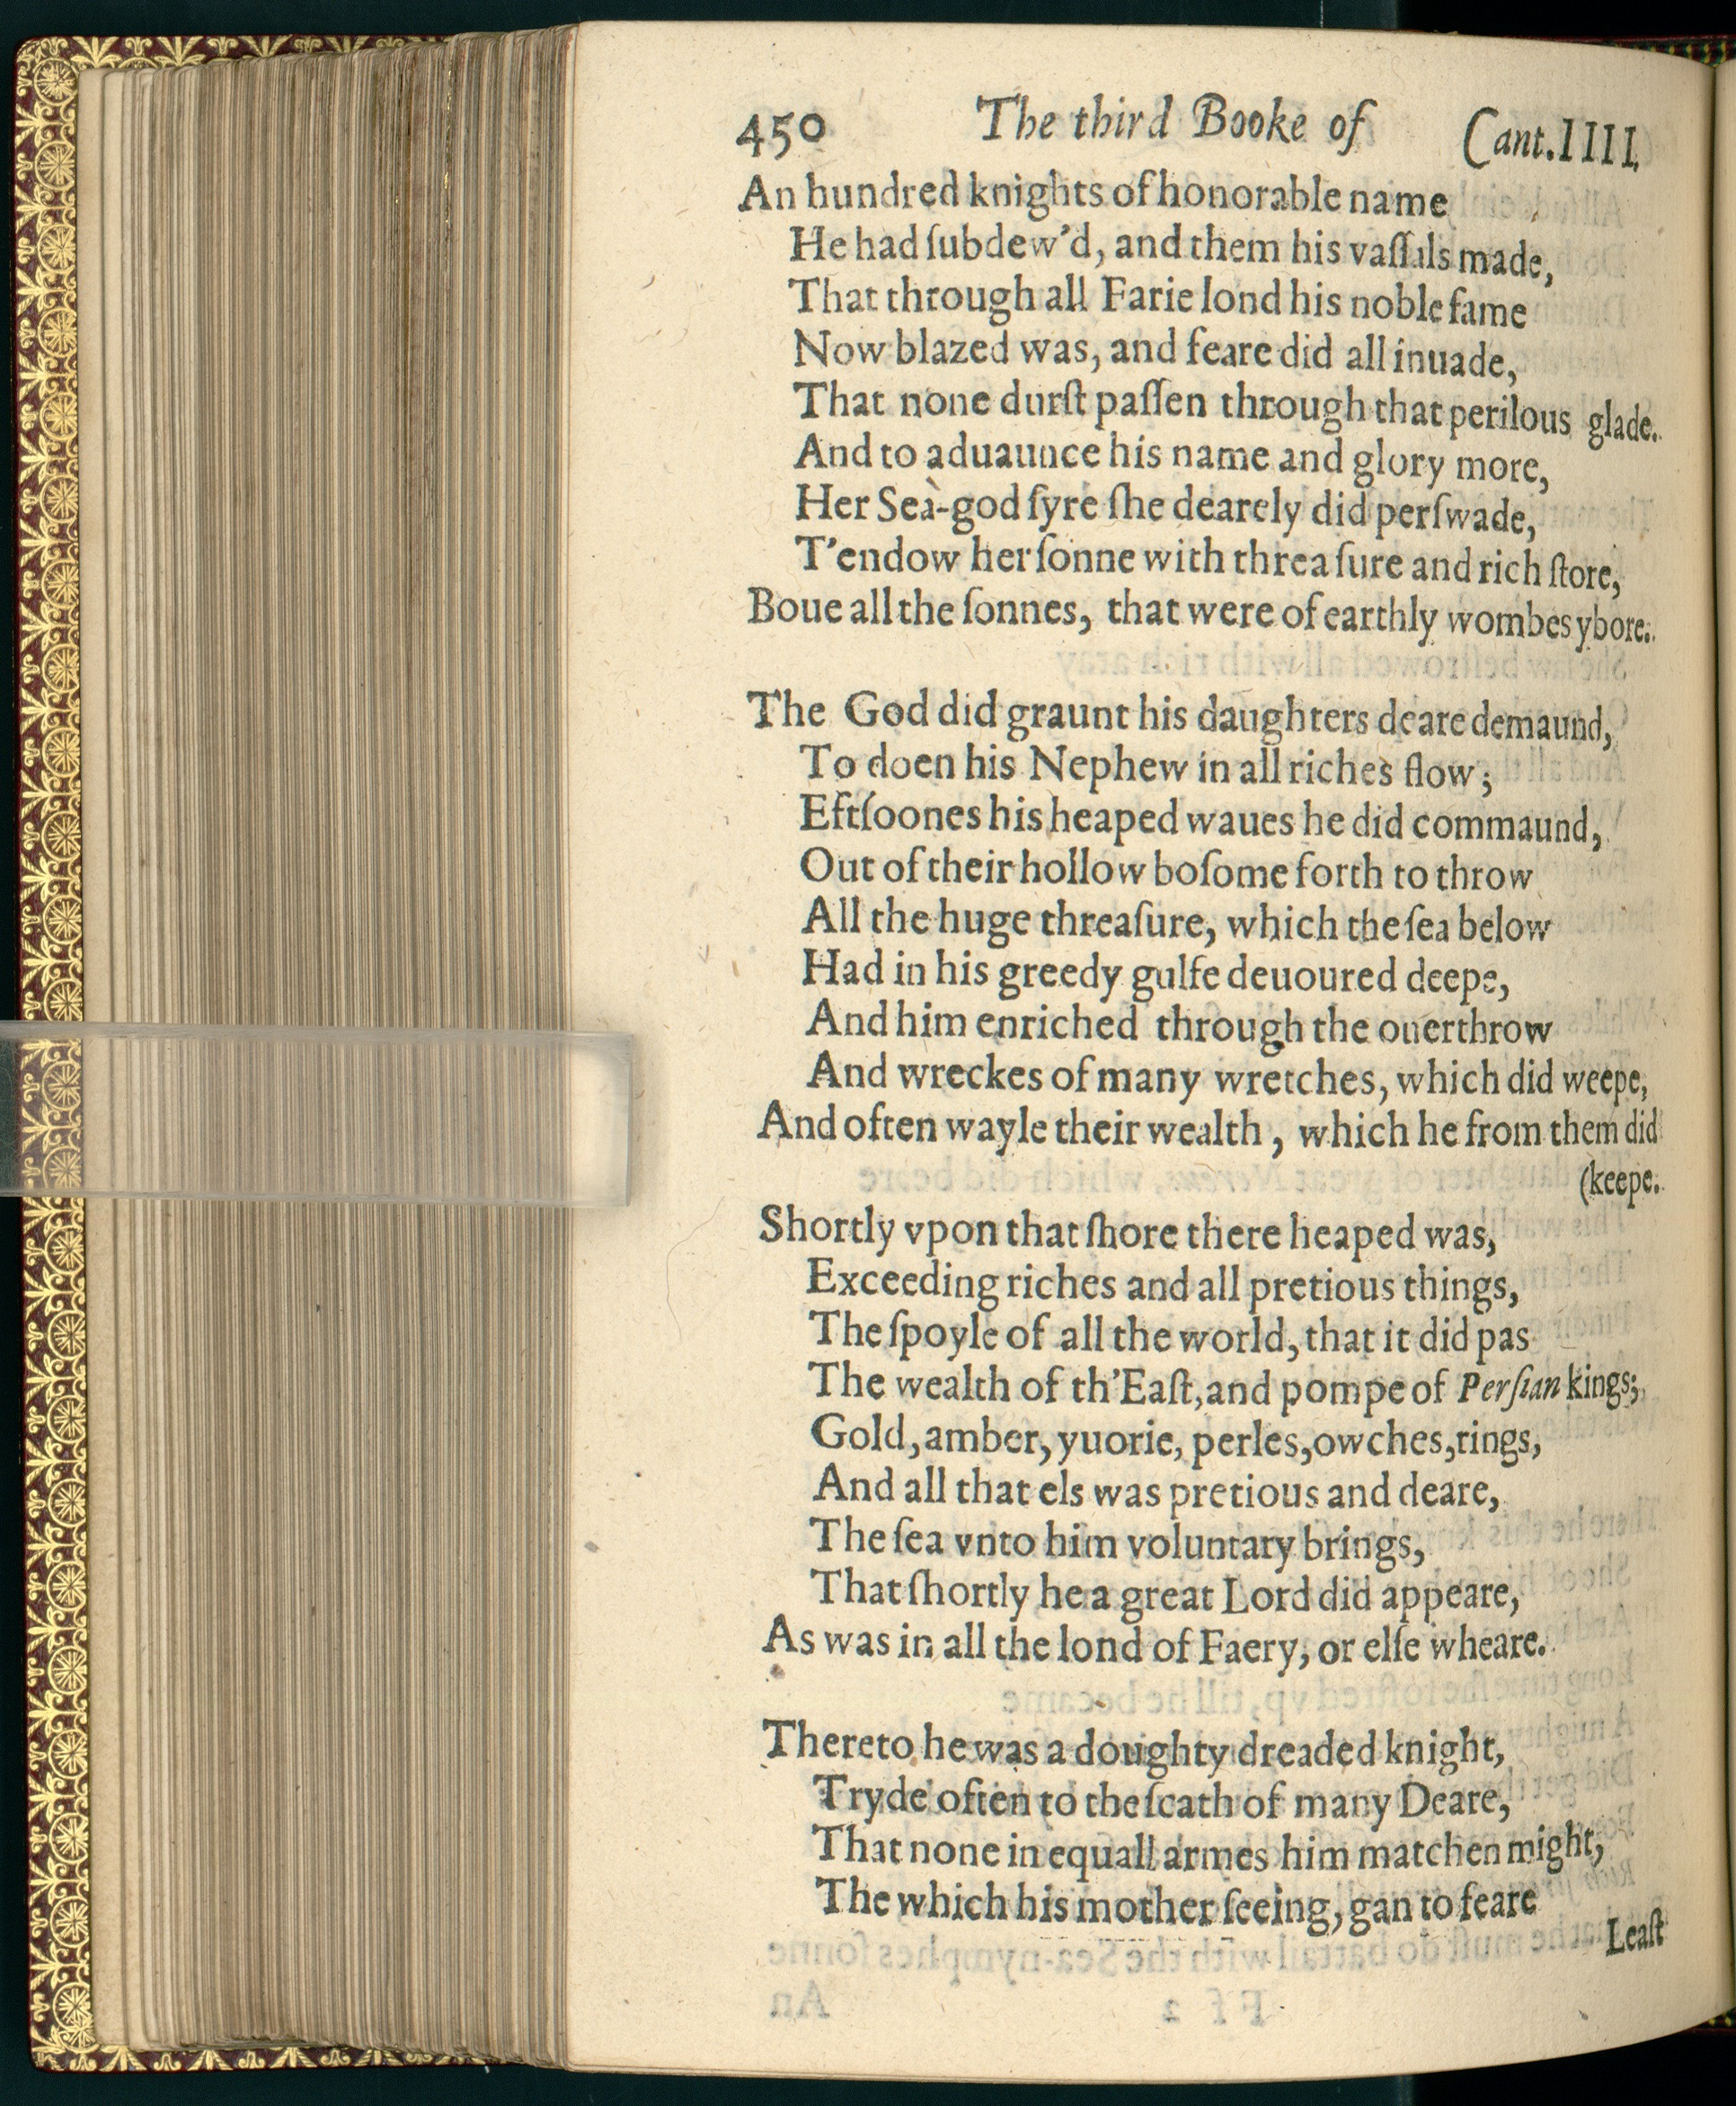 450 The third Booke of Cant.IIII.
An hundred knights of honorable name
He had ſubdew'd, and them his vaſſals made,
That through all Farie lond his noble fame
Now blazed was, and feare did all inuade,
That none durſt paſſen through that perilous glade.
And to aduaunce his name and glory more,
Her Sea-god ſyre ſhe dearely did perſwade,
T'endow her ſonne with threaſure and rich ſtore,
Boue all the ſonnes, that were of earthly wombes ybore.
The God did graunt his daughters deare demaund,
To doen his Nephew in all riches flow;
Eftſoones his heaped waues he did commaund,
Out of their hollow boſome forth to throw
All the huge threaſure, which the ſea below
Had in his greedy gulfe deuoured deepe,
And him enriched through the ouerthrow
And wreckes of many wretches, which did weepe,
And often wayle their wealth, which he from them did
(keepe.
Shortly vpon that ſhore there heaped was,
Exceeding riches and all pretious things,
The ſpoyle of all the world, that it did pas
The wealth of th'Eaſt, and pompe of Perſian kings;
Gold, amber, yuorie, perles, owches, rings,
And all that els was pretious and deare,
The ſea vnto him voluntary brings,
That ſhortly he a great Lord did appeare,
As was in all the lond of Faery, or elſe wheare.
Thereto he was a doughty dreaded knight,
Tryde often to the ſcath of many Deare,
That none in equall armes him matchen might,
The which his mother ſeeing, gan to feare
Leaſt